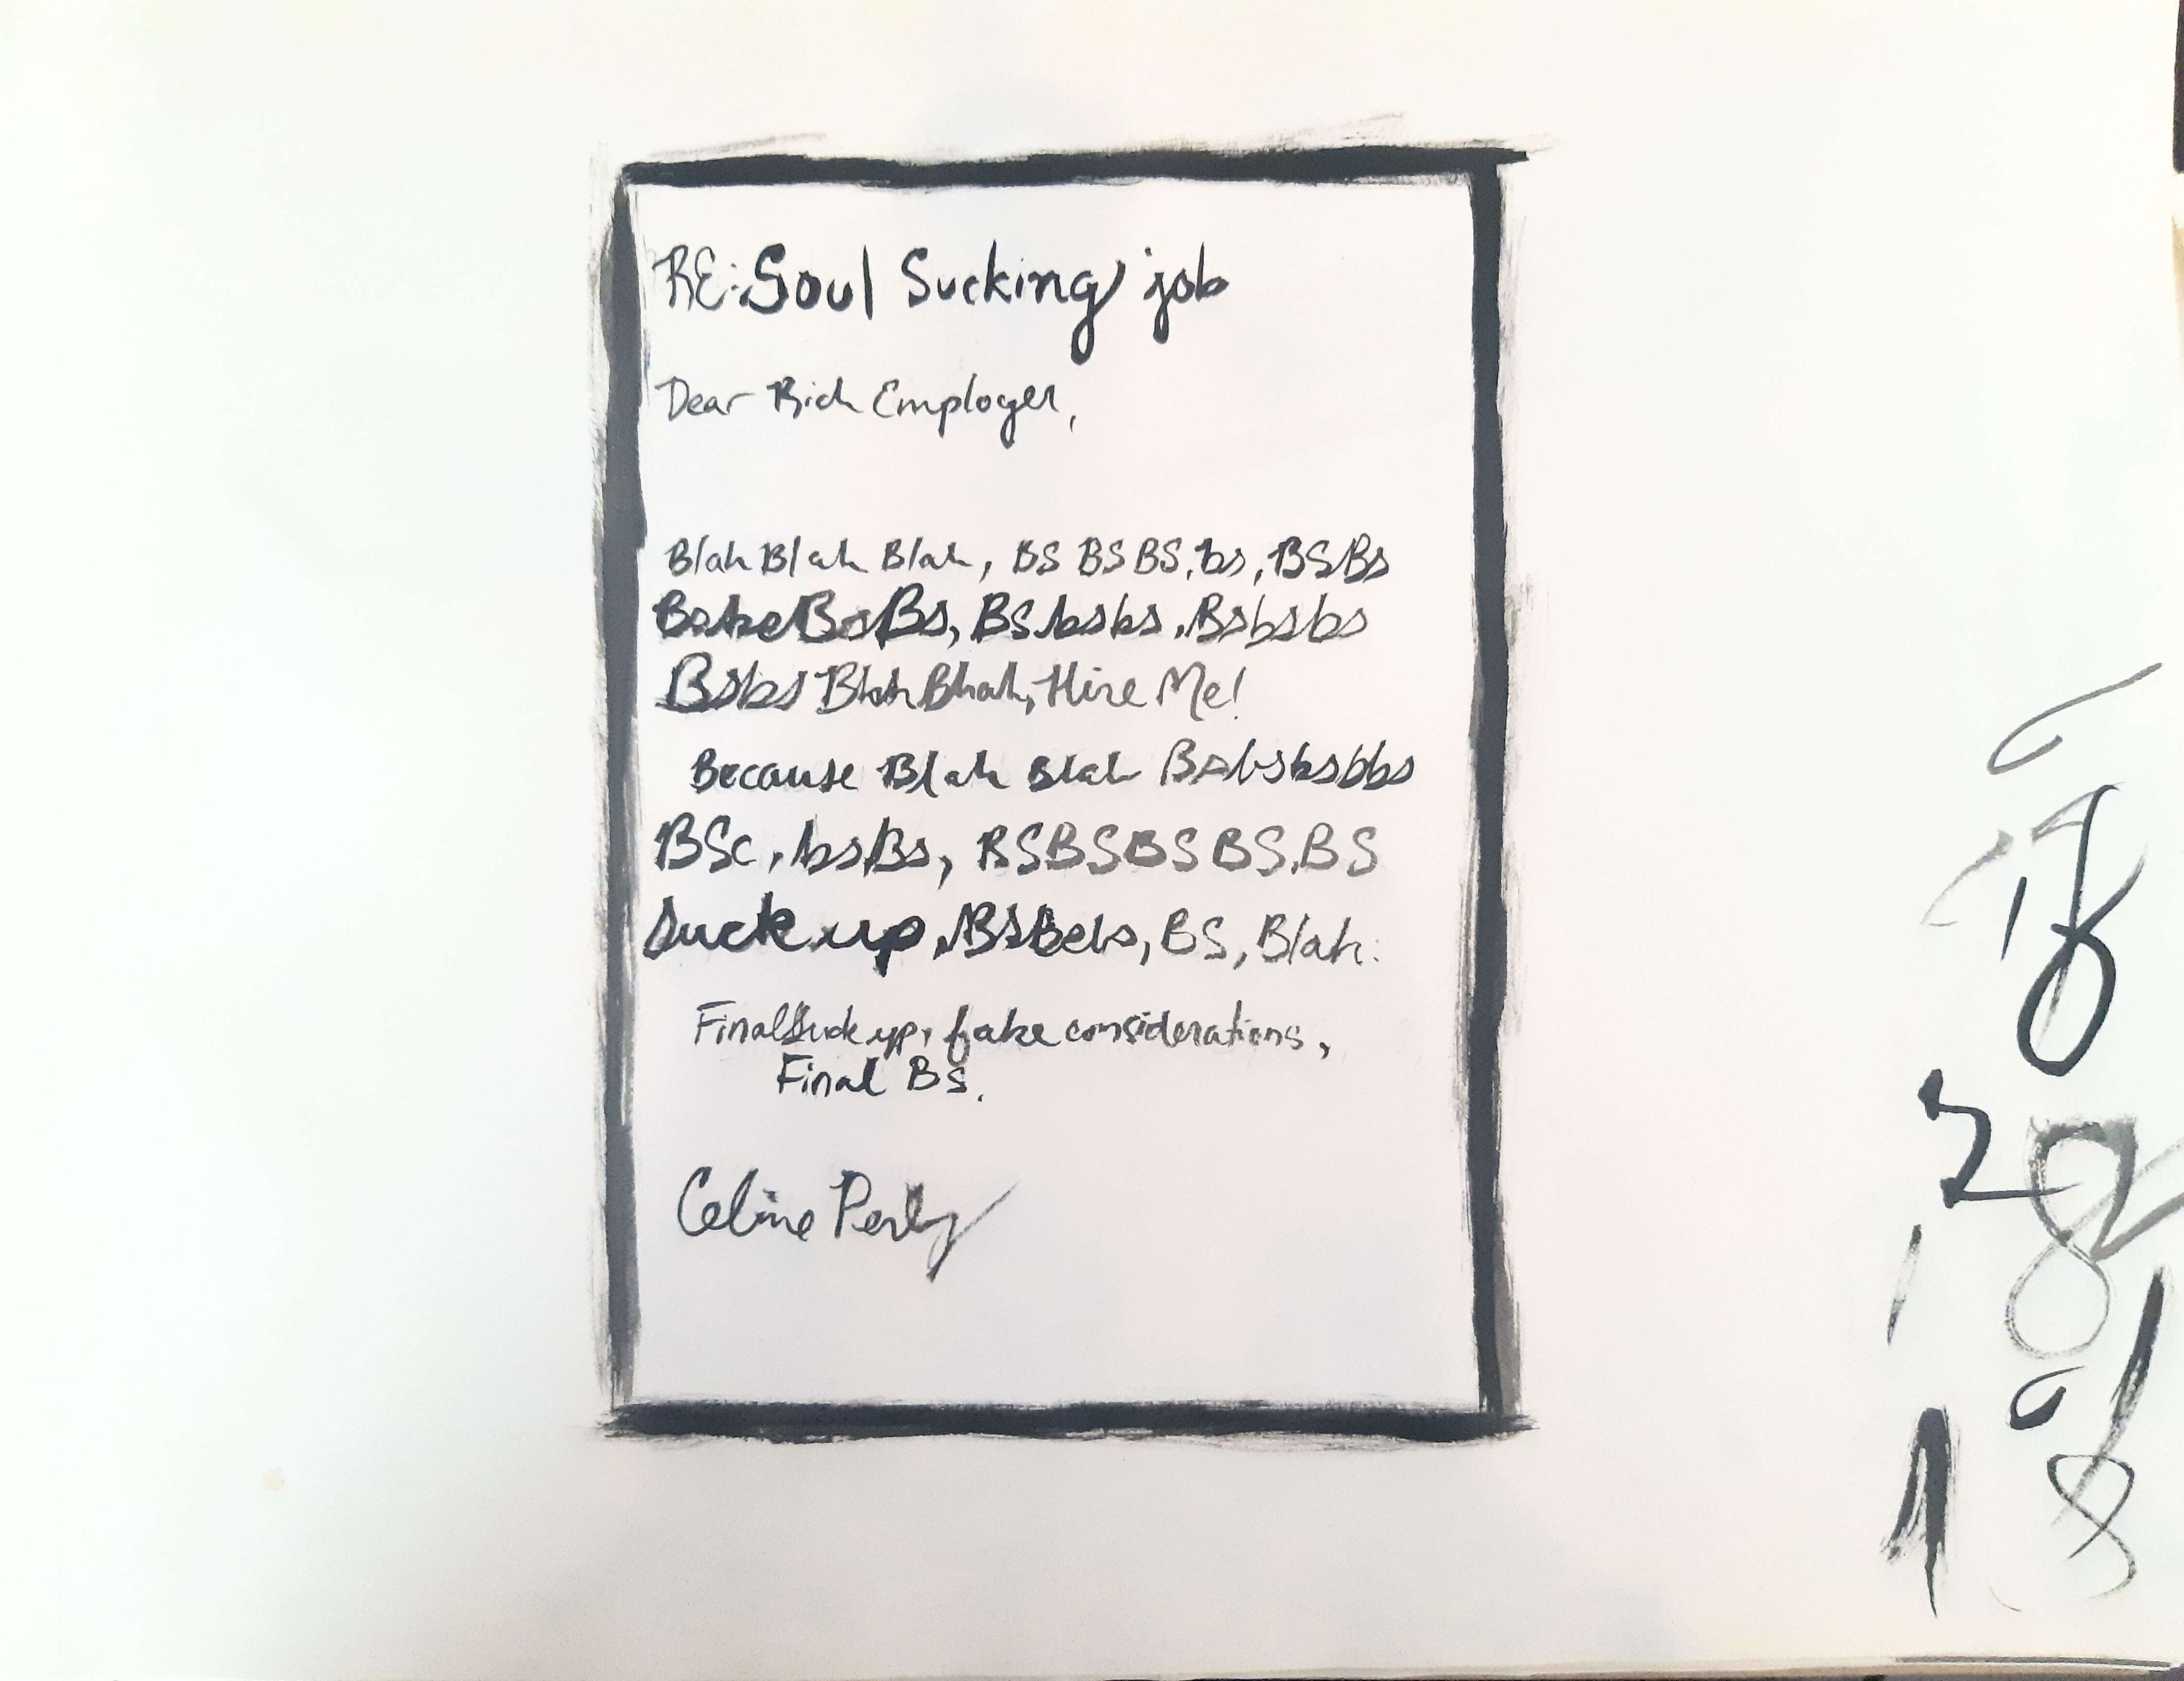 RE: Soul Sucking job
Dear Rich Employer,
Blah Blah Blah, BS BS BS, bs, BSBs
BsBs, BSbsbs, Bsbsbs
Bsbs Blah Blah, Hire Me!
Because Blah Blah Bsbsbsbbs
BSc, bsBs, BSBSBSBS.BS
Suck up, BS, Blah.
Final Suck up, fake considerations,
Final BS.
Celine Perly